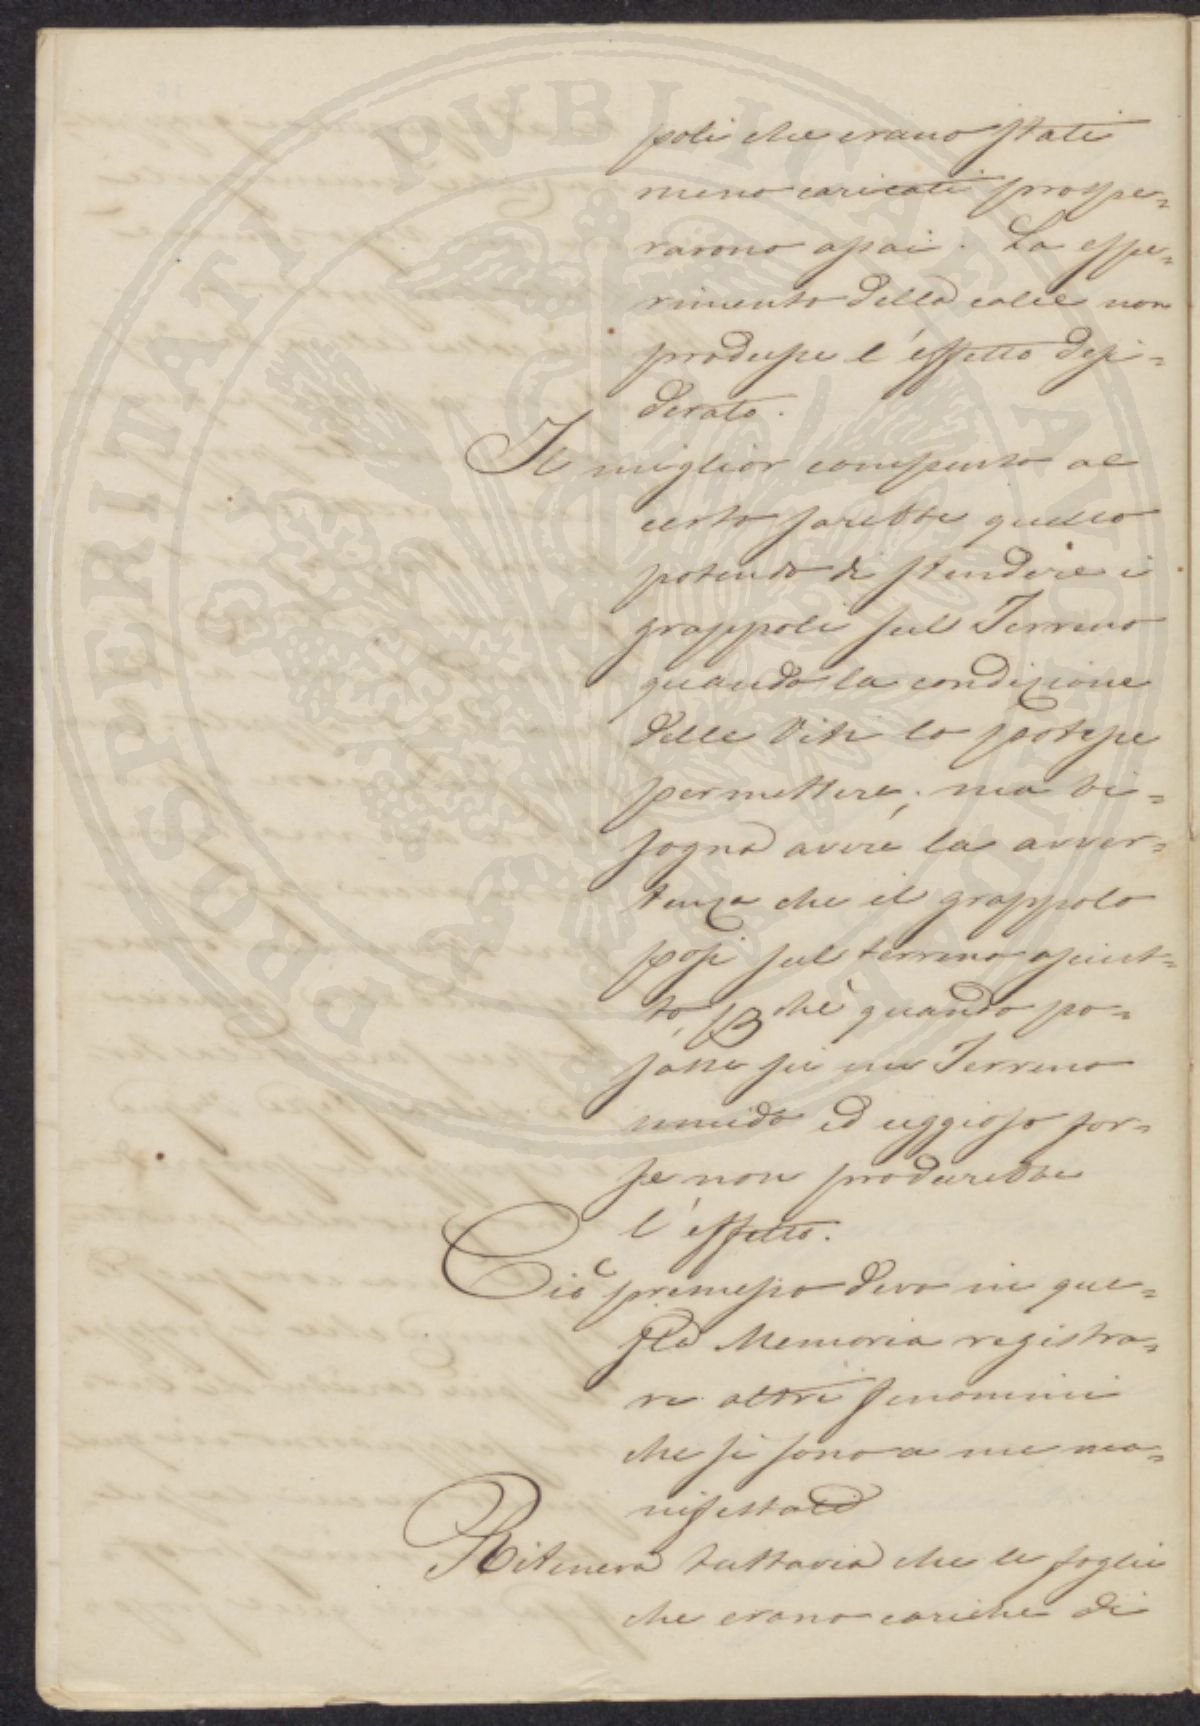 poli che erano stati
meno caricati prospe=
rarono assai. La espe=
rimento della calce non
produsse l'effetto desi=
derato.
Il miglior compenso al
certo sarebbe quello
potendo di stendere i
grappoli sul Terreno
quando la condizione
delle Viti lo potesse
permettere; ma bi=
sogna avere la avver=
tenza che il grappolo
posi sul terreno asciut=
to, p chè quando po=
sasse su un Terreno
umido ed uggioso for=
se non produrebbe
l'effetto.
Ciò premesso devo in que=
sta Memoria registra=
re altri fenomeni
che si sono a me ma=
nifestati
Riteneva tuttavia che le foglie
che erano cariche di
PROSPERITATI PVBLICAE AVGENDAE